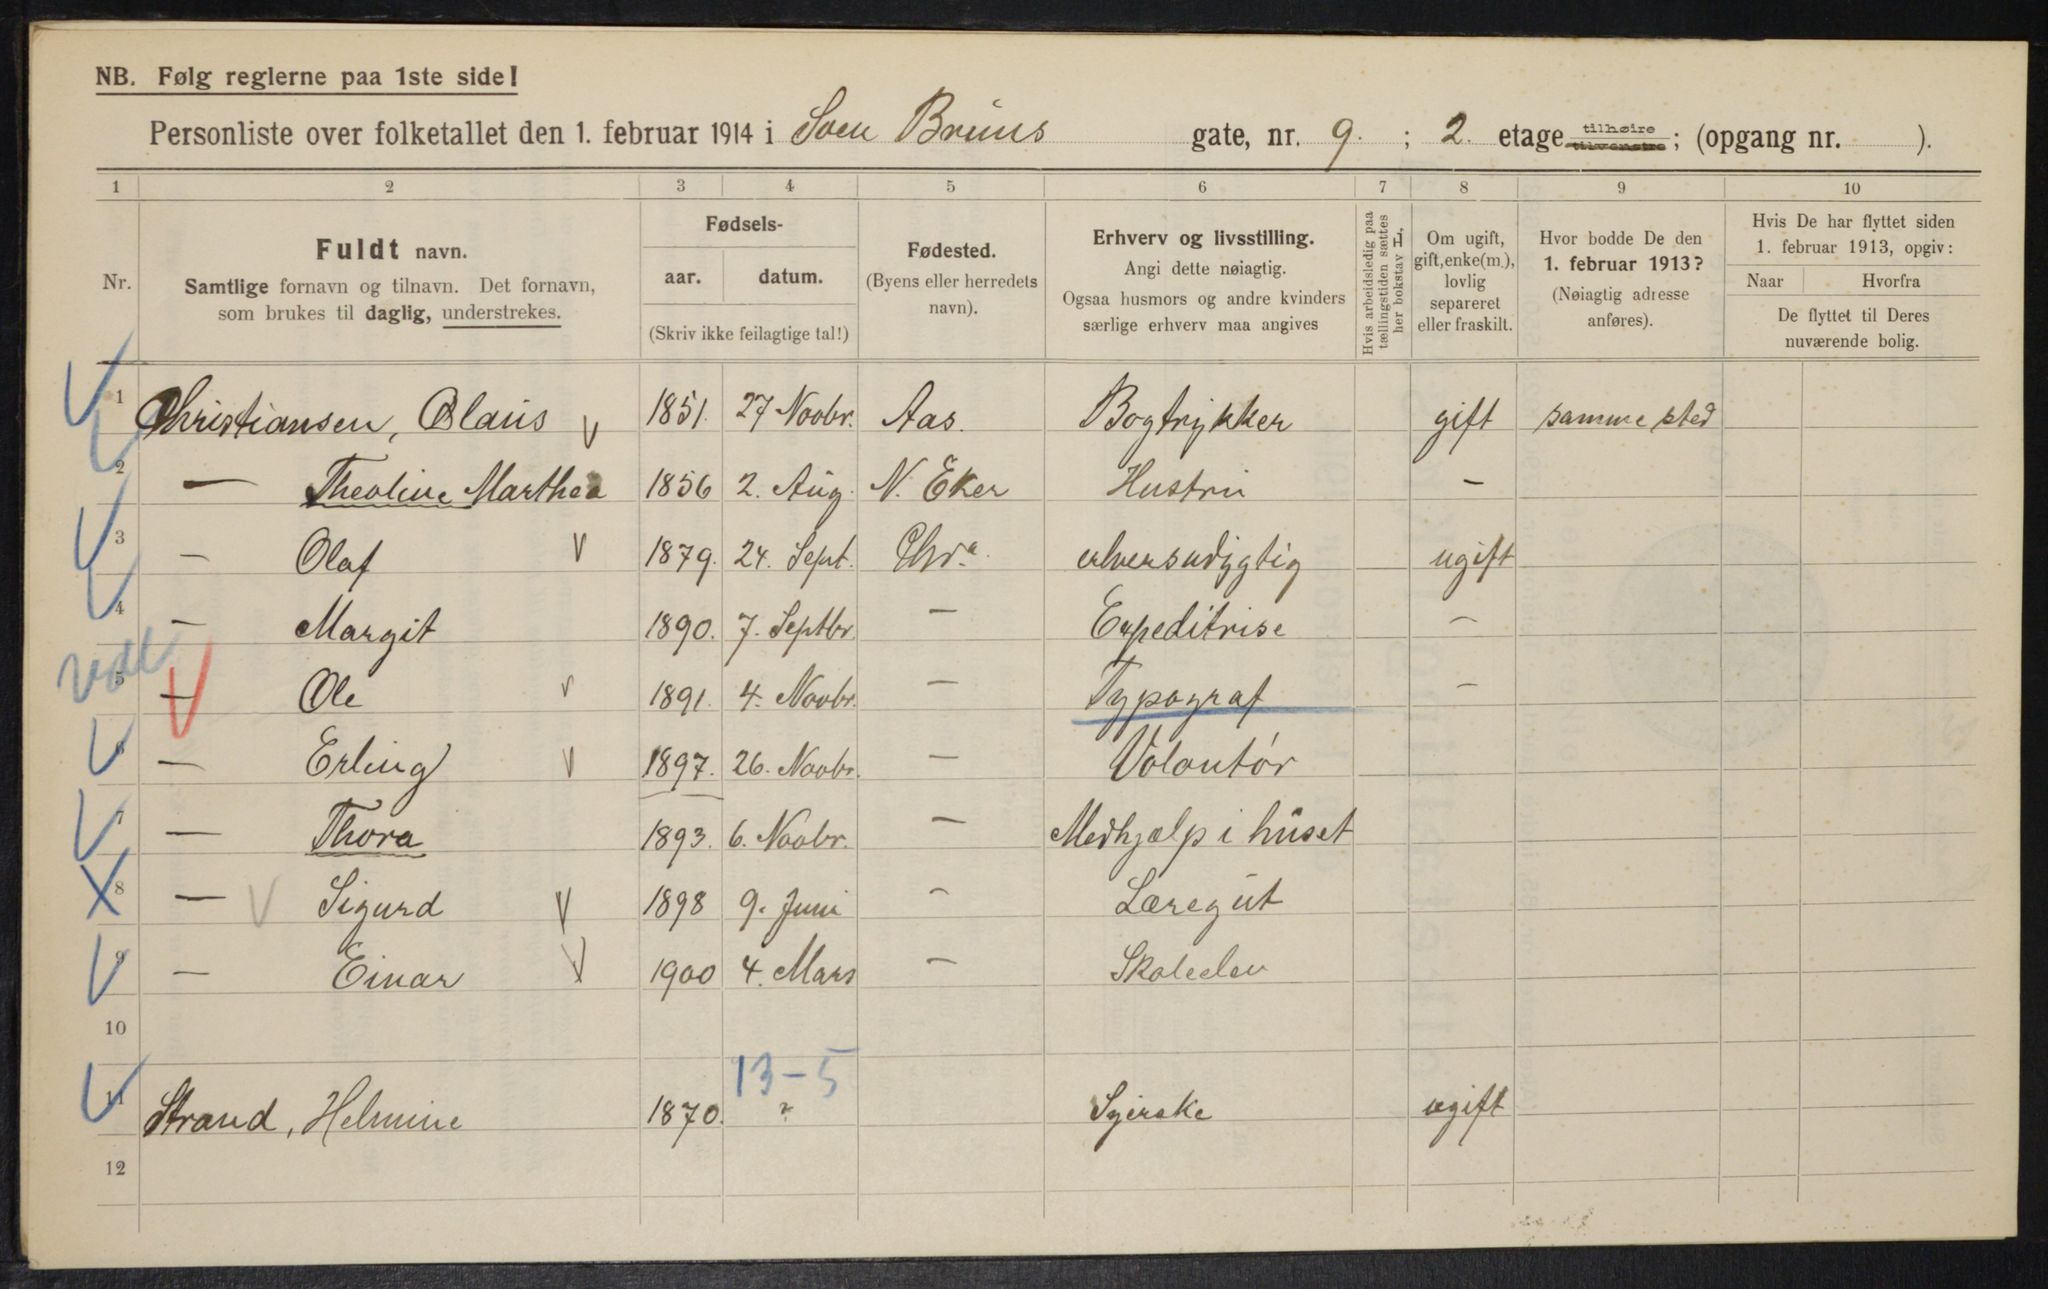 NB. Følg reglerne paa 1ste side!
Personliste over folketallet den 1. februar 1914 i Sven Bruns gate, nr. 9. ; 2. etage tilhøire tilvenstre ; (opgang nr. ).
1 2 3 4 5 6 7 8 9 10
Nr.
Fuldt navn.
Samtlige fornavn og tilnavn. Det fornavn,
som brukes til daglig, understrekes.
Fødsels-
aar. datum.
(Skriv ikke feilagtige tal!)
Fødested.
(Byens eller herredets
navn).
Erhverv og livsstilling.
Angi dette nøiagtig.
Ogsaa husmors og andre kvinders
særlige erhverv maa angives
Hvis arbeidsledig paa
tællingstiden sættes
her bokstav L.
Om ugift,
gift, enke(m.),
lovlig
separeret
eller fraskilt.
Hvor bodde De den
1. februar 1913?
(Nøiagtig adresse
anføres).
Hvis De har flyttet siden
1. februar 1913, opgiv:
Naar Hvorfra
De flyttet til Deres
nuværende bolig.
1 Christiansen, Olaus V 1851. 27 Novbr. Aas. Bogtrykker gift samme sted
2 — Theoline Marthea 1856 2. Aug. N. Eker Hustru —
3 — Olaf V 1879. 24. Sept. Chr.a ugift
4 — Margit 1890. 7. Septbr. — Expeditrise —
5 — Ole V 1891. 4. Novbr. — Typograf —
6 — Erling V 1897. 26. Novbr. — Volontør
7 — Thora 1893. 6. Novbr. — Medhjælp i huset
8 — V Sigurd V 1898 9. Juni — Læregut
9 — Einar V 1900 4. Mars — Skoleelev
10
13-5
11 Strand, Helmine 1870. ? Syerske ugift
12